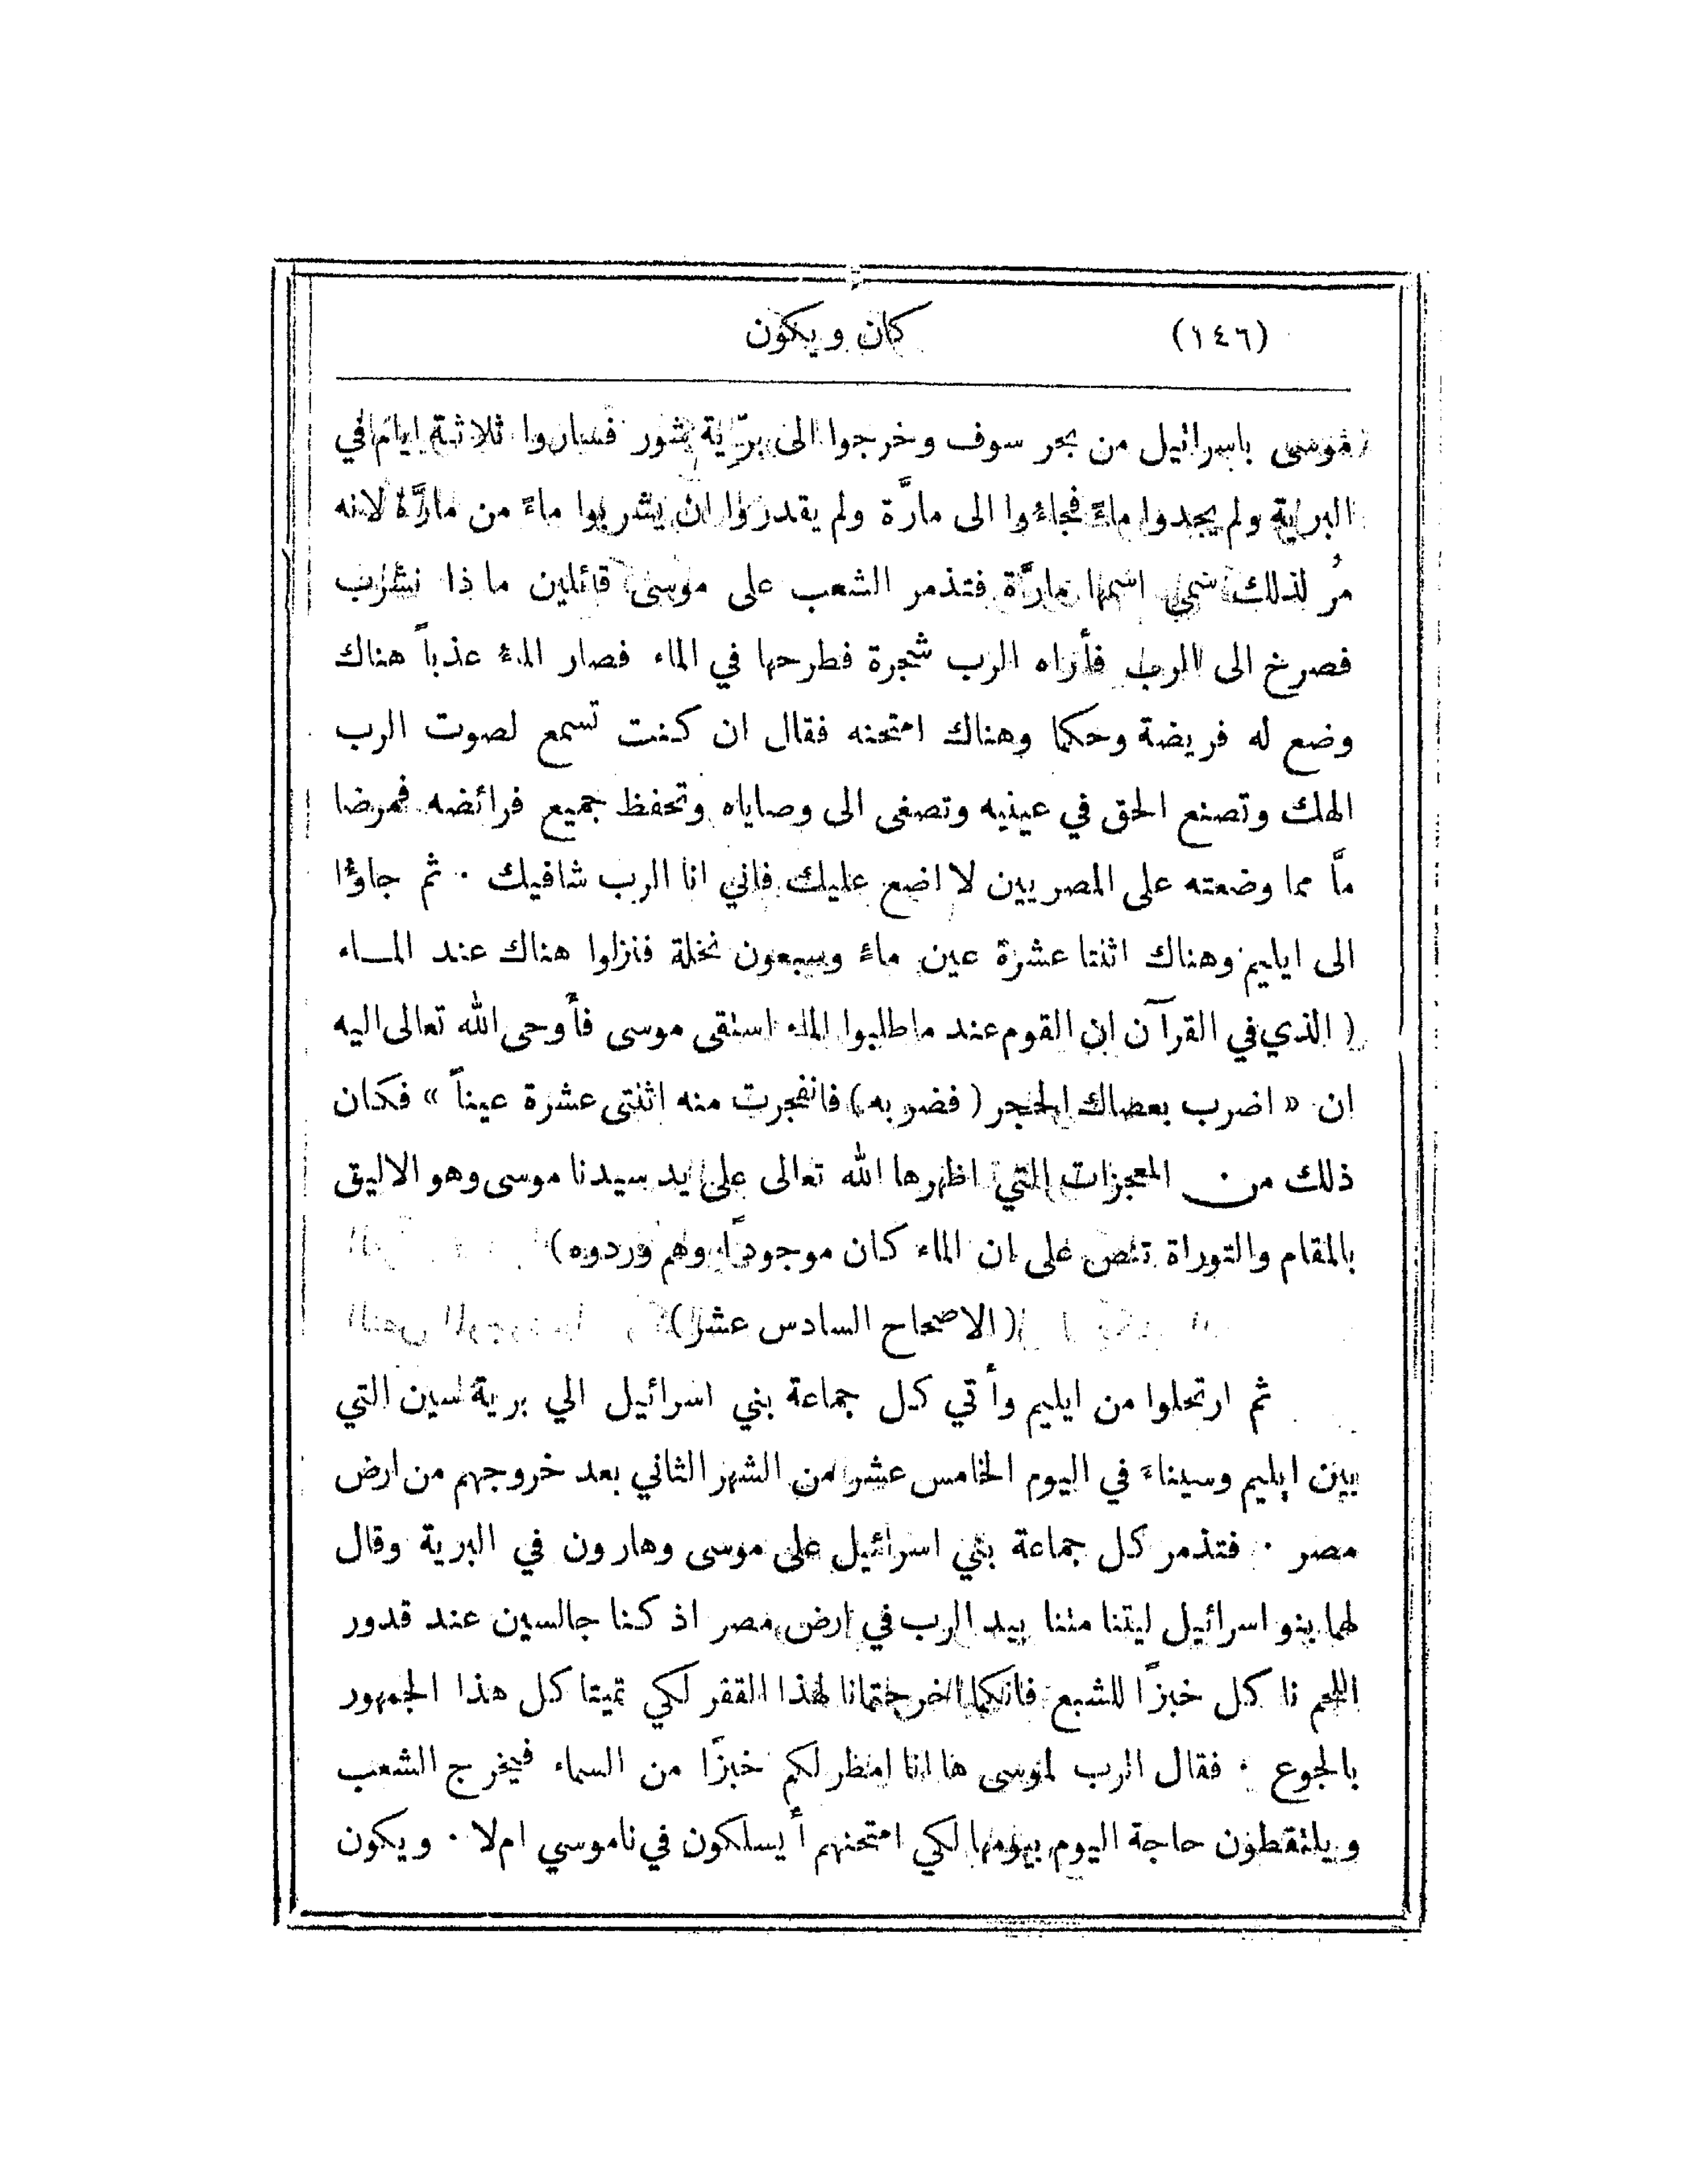 (١٤٦) كان ويكون
موسى باسرائيل من بحر سوف وخرجوا الى برّية شور فساروا ثلاثة ايام في
البرية ولم يجدوا ماءً فجاءوا الى مارَّة ولم يقدروا ان يشربوا ماءً من مارَّة لانه
مرُ لذلك سُمي اسمها مارَّة فتذمر الشعب على موسى قائلين ماذا نشرب
فصرخ الى الرب فأراه الرب شجرة فطرحها في الماء فصار الماءُ عذباً هناك
وضع له فريضة وحكما وهناك امتحنه فقال ان كنت تسمع لصوت الرب
الهك وتصنع الحق في عينيه وتصغى الى وصاياه وتحفظ جميع فرائضه فمرضا
مَّا مما وضعته على المصريين لا اضع عليك فاني انا الرب شافيك ٠ ثم جاؤا
الى ايليم وهناك اثنتا عشرة عين ماءً وسبعون نخلة فنزلوا هناك عند المـاء
( الذي في القرآن ان القوم عند ما طلبوا الماء استقى موسى فأوحى الله تعالى اليه
ان « اضرب بعصاك الحجر ( فضربه ) فانفجرت منه اثنتى عشرة عيناً » فكان
ذلك من المعجزات التي اظهرها الله تعالى على يد سيدنا موسى وهو الاليق
بالمقام والتوراة تنص على ان الماء كان موجوداً وهم وردوه )
( الاصحاح السادس عشر )
ثم ارتحلوا من ايليم وأتي كل جماعة بني اسرائيل الي برية سين التي
بين ايليم وسيناءَ في اليوم الخامس عشر من الشهر الثاني بعد خروجهم من ارض
مصر ٠ فتذمر كل جماعة بني اسرائيل على موسى وهارون في البرية وقال
لهما بنو اسرائيل ليتنا متنا بيد الرب في ارض مصر اذ كنا جالسين عند قدور
اللحم نا كل خبزاً للشبع فانكما اخرجتمانا لهذا القفر لكي تميتا كل هذا الجمهور
بالجوع ٠ فقال الرب لموسى ها انا امطر لكم خبزًا من السماء فيخرج الشعب
ويلتقطون حاجة اليوم بيومها لكي امتحنهم أيسلكون في ناموسي ام لا ٠ ويكون